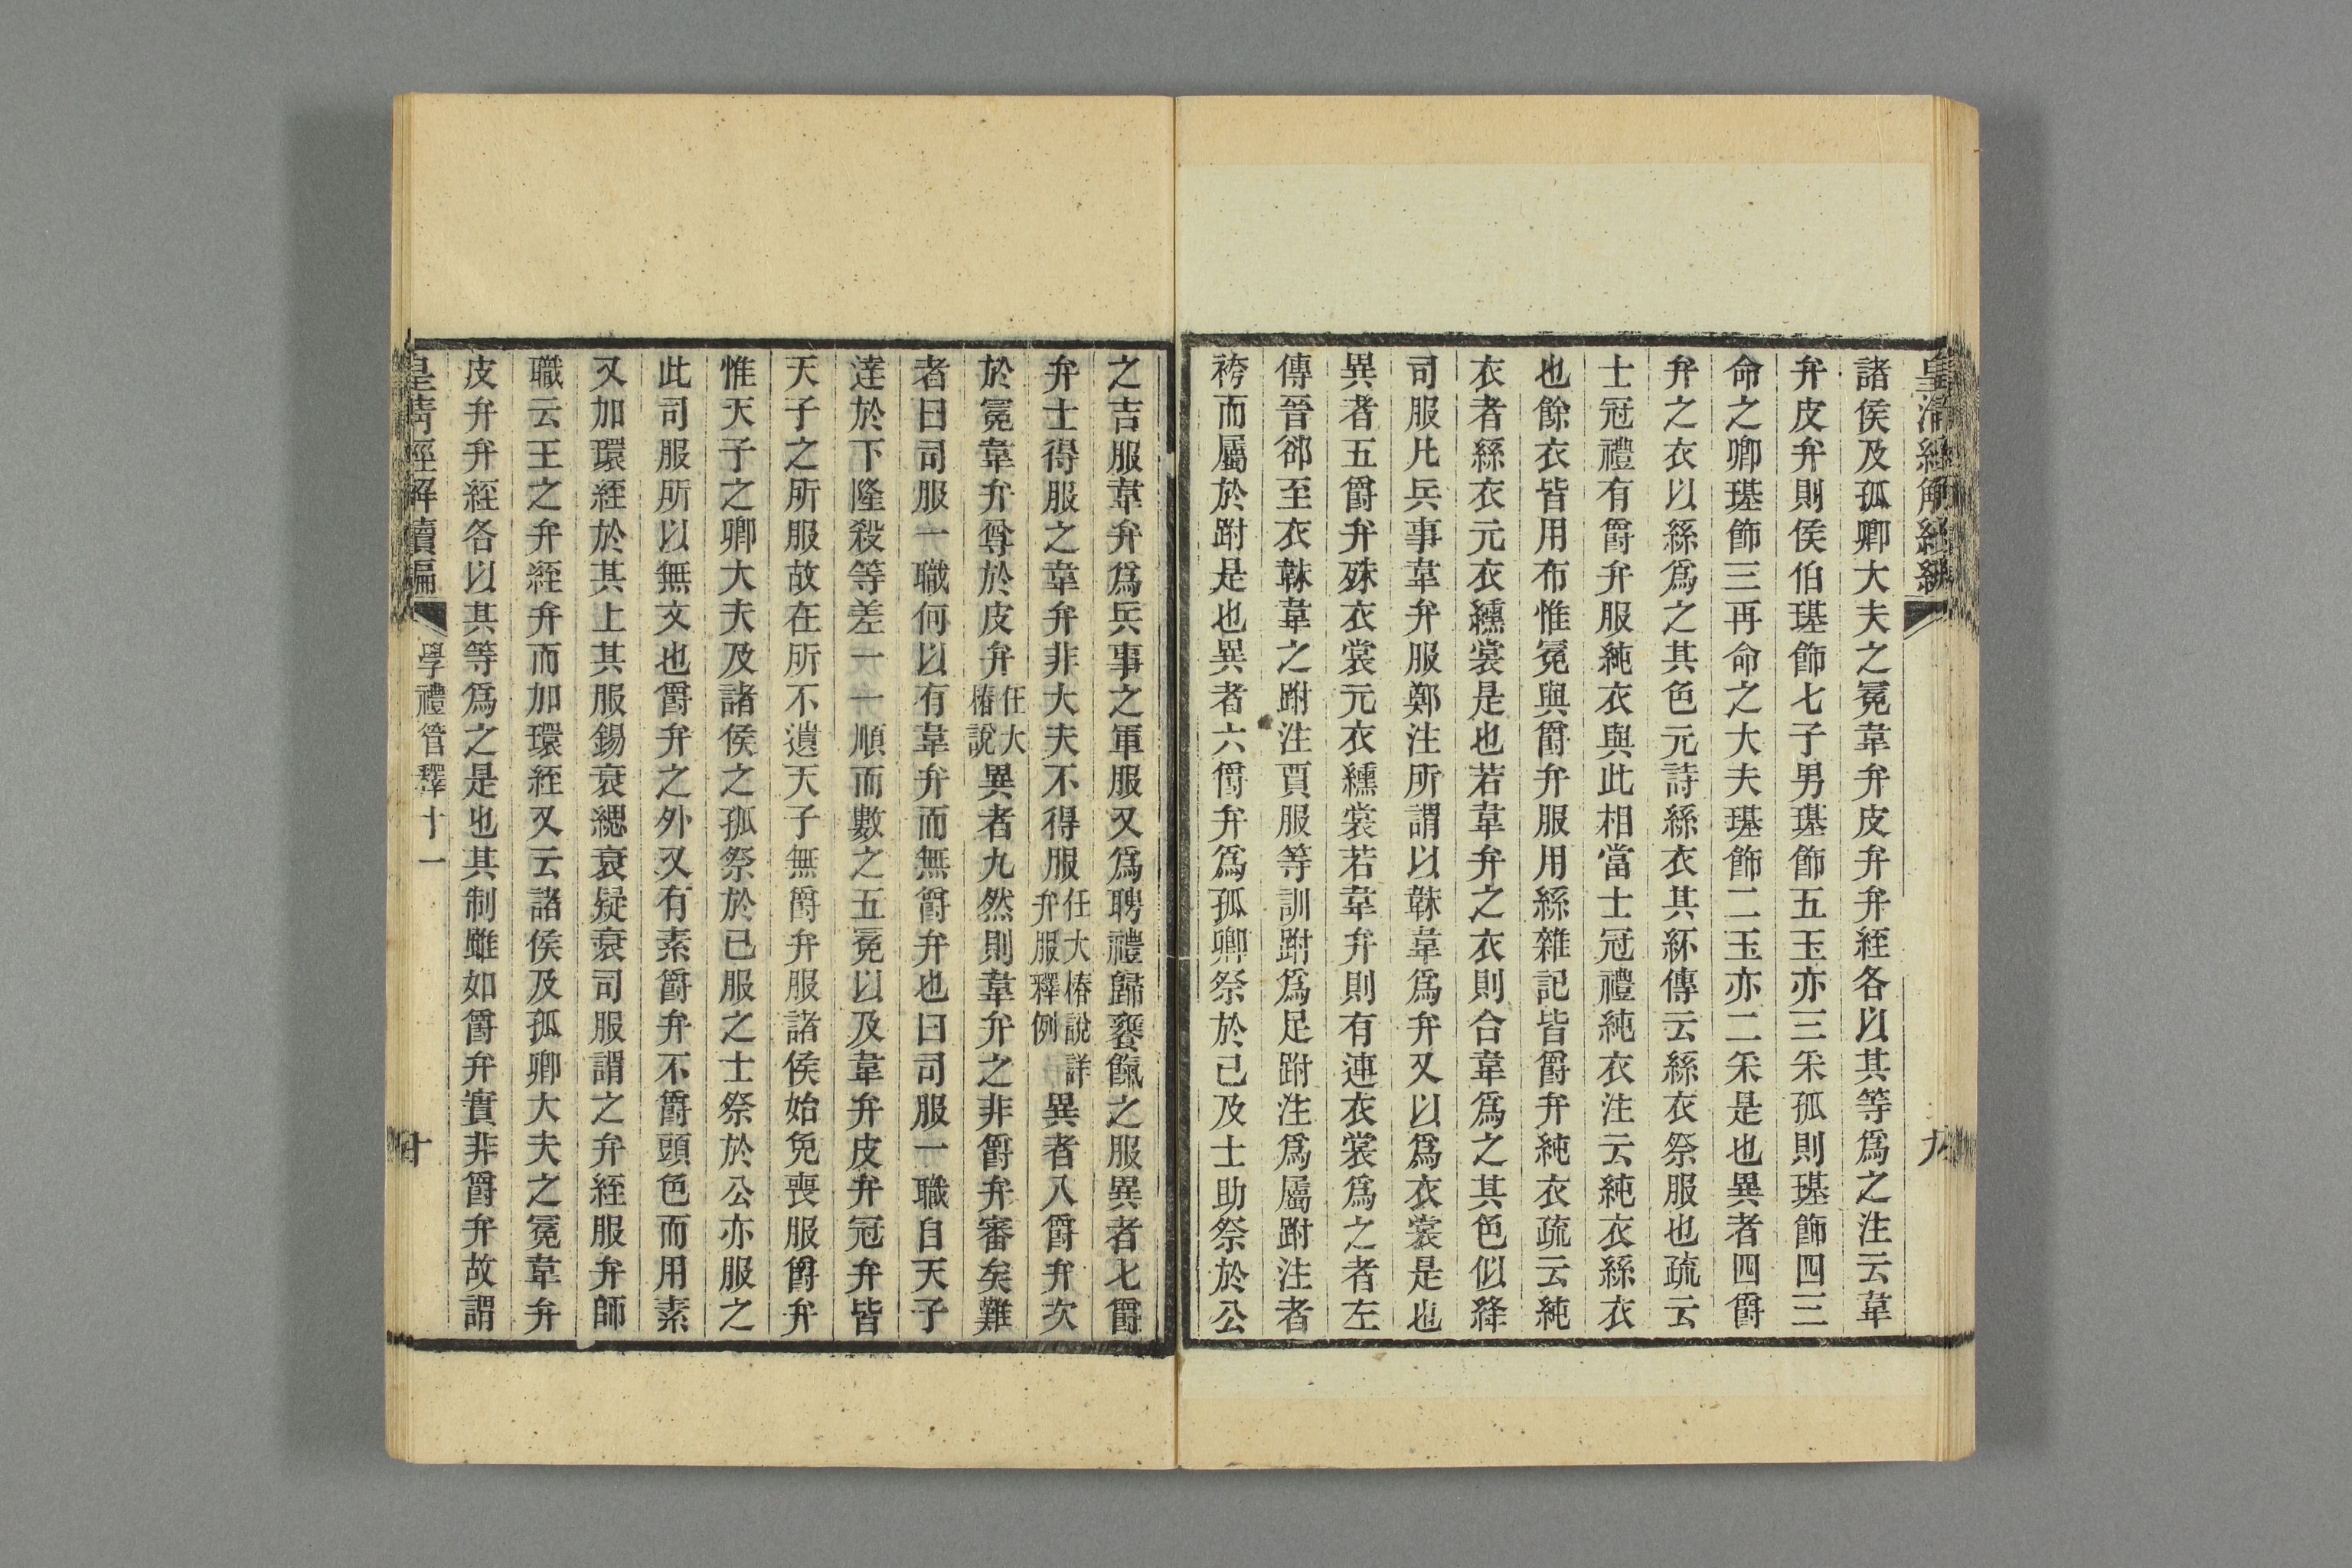 諸侯及孤卿大夫之冕韋弁皮弁弁絰各以其等爲之注云韋
弁皮弁則侯伯璂飾七子男璂飾五玉亦三采孤則璂飾四三
命之卿璂飾三再命之大夫璂飾二玉亦二采是也異者四爵
弁之衣以絲爲之其色元詩絲衣其紑傳云絲衣祭服也疏云
士冠禮有爵弁服純衣與此相當士冠禮純衣注云純衣絲衣
也餘衣皆用布惟冕與爵弁服用絲雜記皆爵弁純衣疏云純
衣者絲衣元衣纁裳是也若韋弁之衣則合韋爲之其色似絳
司服凡兵事韋弁服鄭注所謂以韎韋爲弁又以爲衣裳是也
異者五爵弁殊衣裳元衣纁裳若韋弁則有連衣裳爲之者左
傳晉郤至衣韎韋之跗注賈服等訓跗爲足跗注爲屬跗注者
袴而屬於跗是也異者六爵弁爲孤卿祭於己及士助祭於公
之吉服韋弁爲兵事之軍服又爲聘禮歸饔餼之服異者七爵
弁士得服之韋弁非大夫不得服任大椿說詳弁服釋例異者八爵弁次
於冕韋弁尊於皮弁任大椿說異者九然則韋弁之非爵弁審矣難
者曰司服一職何以有韋弁而無爵弁也曰司服一職自天子
達於下隆殺等差一一順而數之五冕以及韋弁皮弁冠弁皆
天子之所服故在所不遺天子無爵弁服諸侯始免喪服爵弁
惟天子之卿大夫及諸侯之孤祭於已服之士祭於公亦服之
此司服所以無文也爵弁之外又有素爵弁不爵頭色而用素
又加環絰於其上其服錫衰緦衰疑衰司服謂之弁絰服弁師
職云王之弁絰弁而加環絰又云諸侯及孤卿大夫之冕韋弁
皮弁弁絰各以其等爲之是也其制雖如爵弁實非爵弁故謂
皇淸經解續編
學禮管釋十一
十